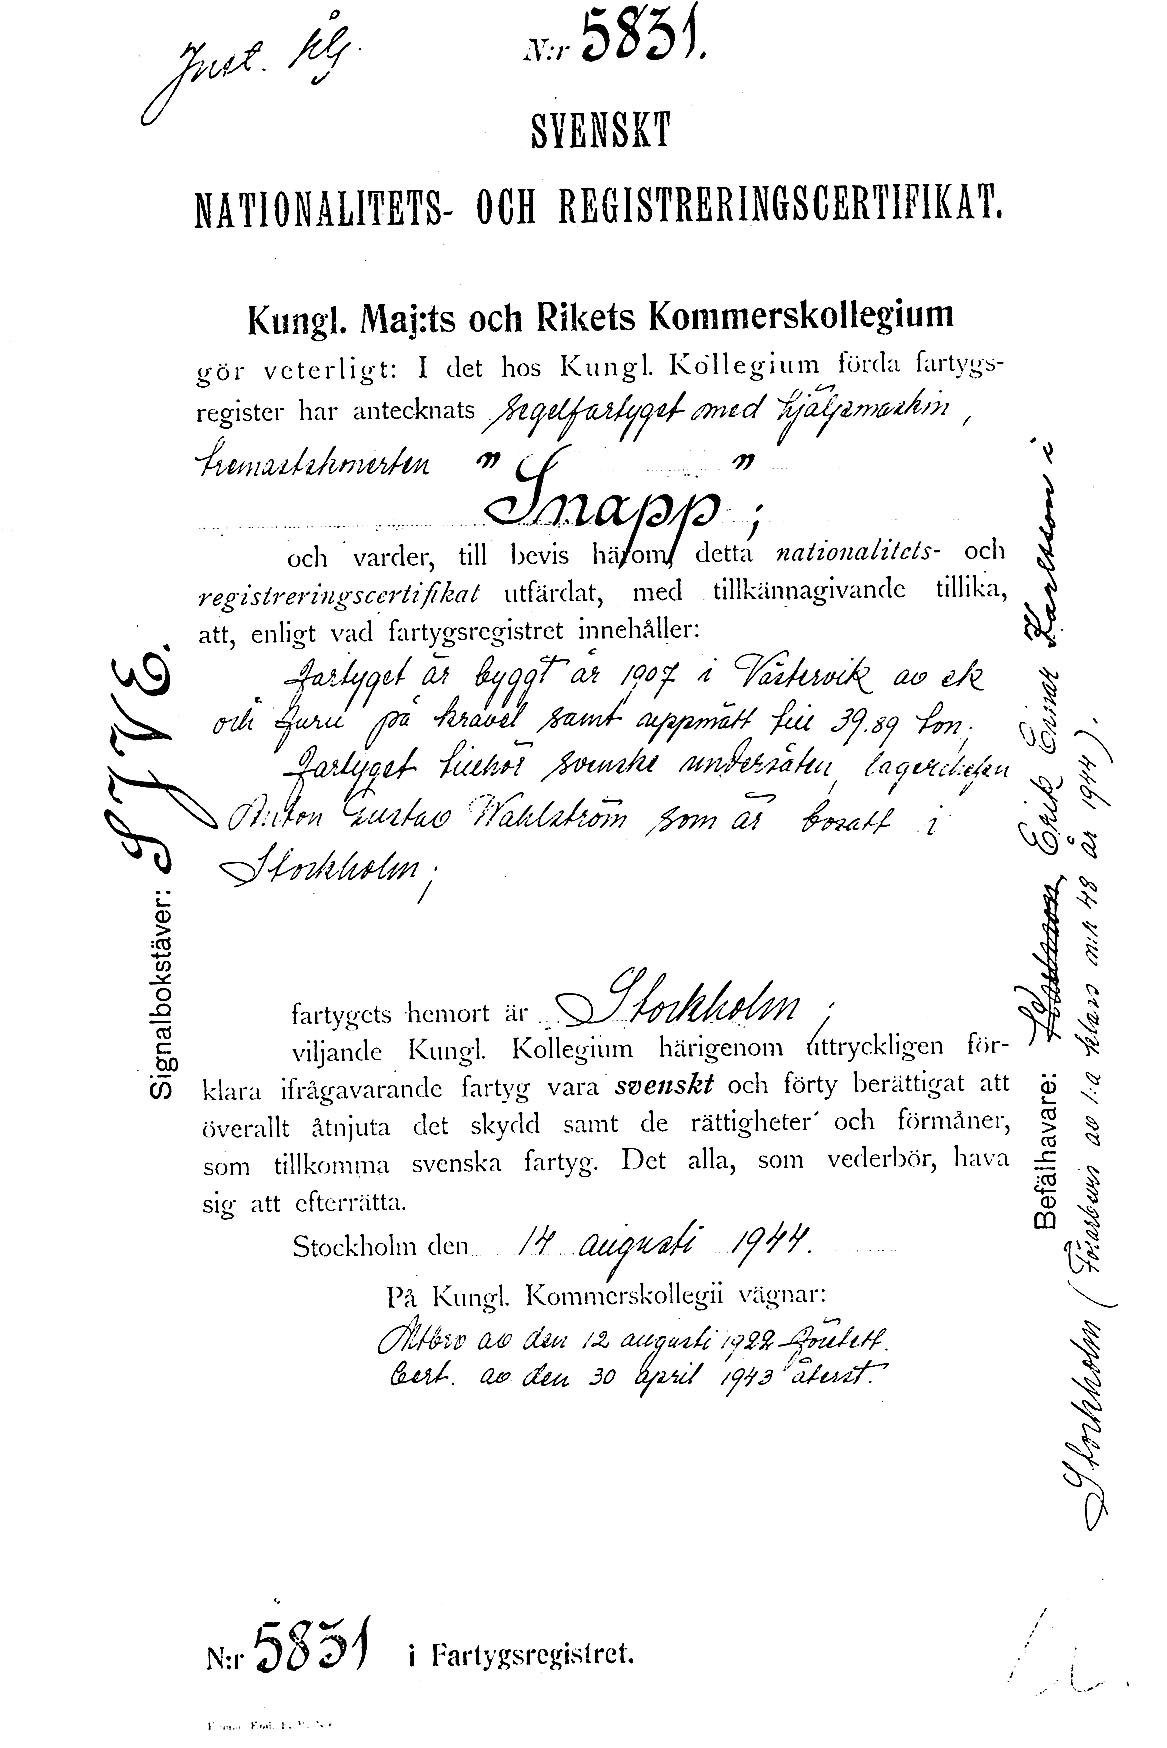 Just.
N:r 5831.
SVENSKT
NATIONALITETS- OCH REGISTRERINGSCERTIFIKAT.
Kungl. Maj:ts och Rikets Kommerskollegium
gör veterligt: I det hos Kungl. Kollegium förda fartygs-
register har antecknats segelfartyget med hjälpmaskin,
tremastskonerten "
Snapp";
och varder, till bevis härom, detta nationalitets- och
registreringscertifikat utfärdat, med tillkännagivande tillika,
att, enligt vad fartygsregistret innehåller:
fartyget är byggt år 1907 i Västervik av ek
och furu på kravel samt uppmätt till 39.89 ton;
fartyget tillhör svenske undersåten, lagerchefen
Anton Gustav Wahlström som är bosatt i
Stockholm;
fartygets hemort är Stockholm;
viljande Kungl. Kollegium härigenom uttryckligen för-
klara ifrågavarande fartyg vara svenskt och förty berättigat att
överallt åtnjuta det skydd samt de rättigheter och förmåner,
som tillkomma svenska fartyg. Det alla, som vederbör, hava
sig att efterrätta.
Stockholm den 14 augusti 1944.
På Kungl. Kommerskollegii vägnar:
Mtbrev av den 12 augusti 1922 företett.
Cert. av den 30 april 1943 återst.
Signalbokstäver: SJVE.
Befälhavare: Erik Einar Karlsson i
Stockholm (Förarbevis av 1:a klass n:r 48 år 1944).
N:r 5831 i Fartygsregistret.